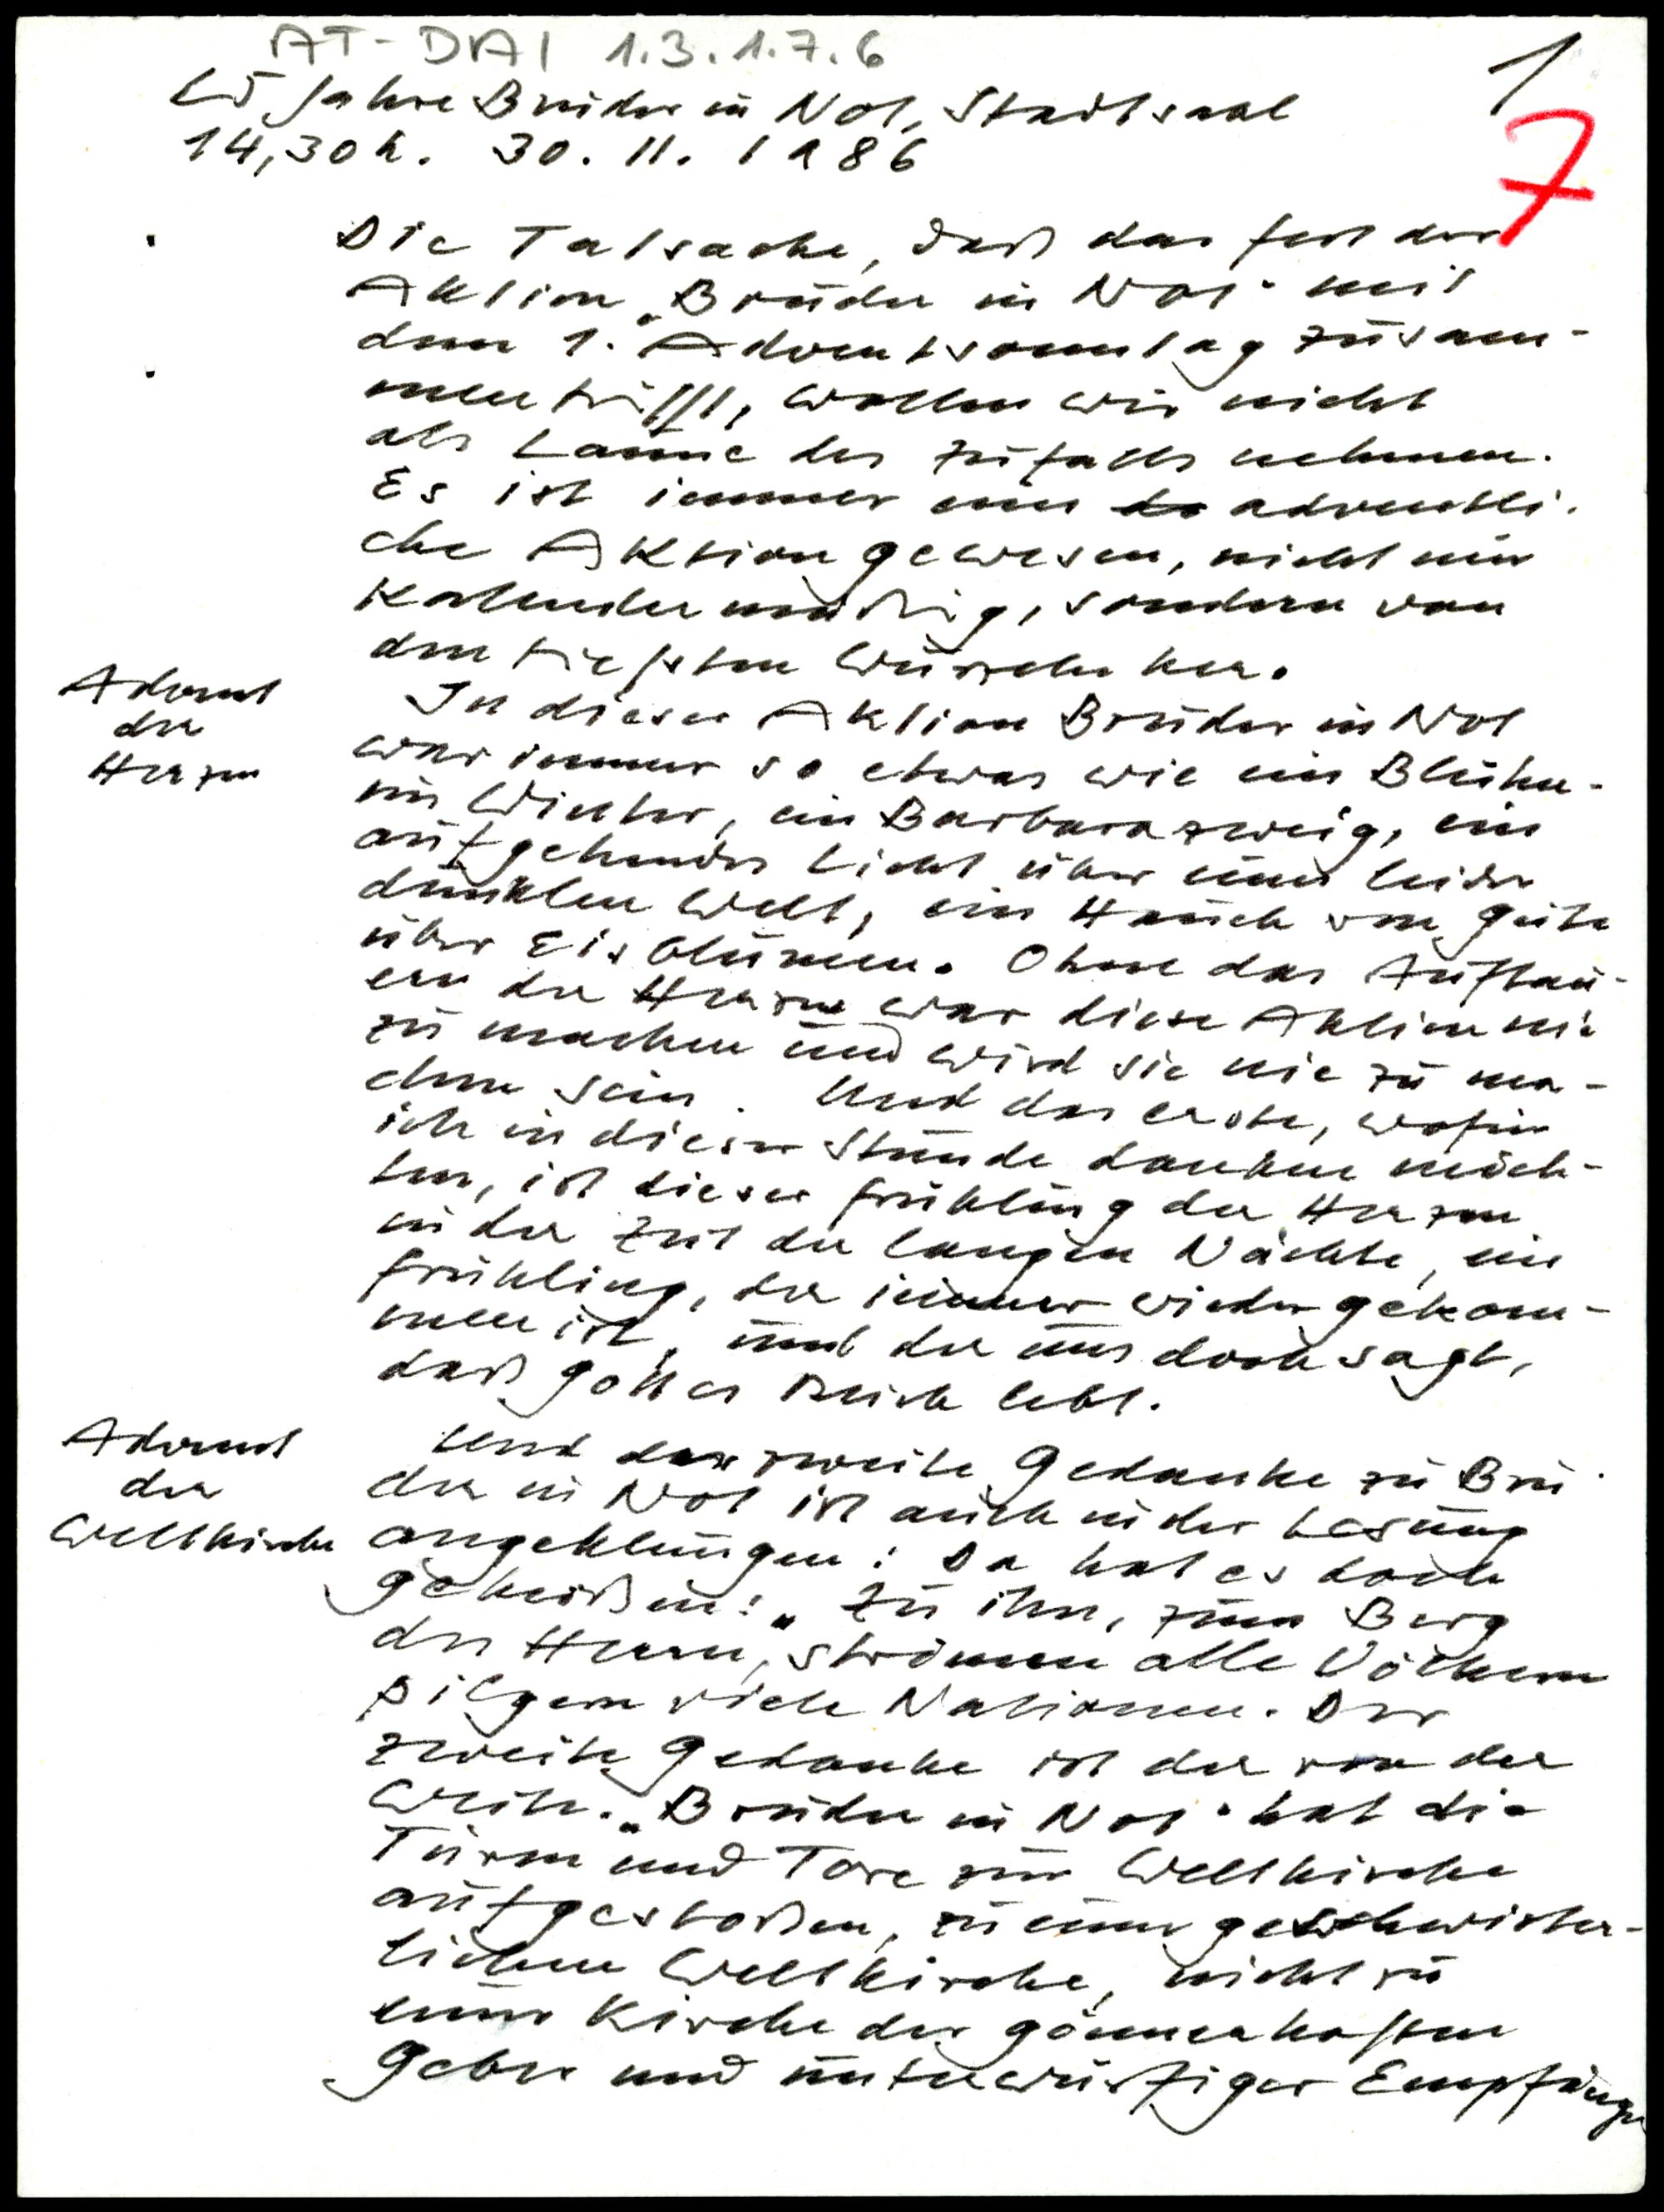 AT-DAI 1.3.1.7.6
1
25 Jahre Bruder in Not, Stadtsaal
14,30 h. 30. 11. 1986
7
Die Tatsache, daß das Fest der
Aktion „Bruder in Not" mit
dem 1. Adventsonntag zusam-
mentrifft, wollen wir nicht
als Laune des Zufalls nehmen.
Es ist immer eine adventli-
che Aktion gewesen, nicht nur
kalendermäßig, sondern von
den tiefsten Wurzeln her.
Advent
der
Herzen
In dieser Aktion Bruder in Not
war immer so etwas wie ein Blühen
im Winter, ein Barbarazweig, ein
aufgehendes Licht über einer leider
dunklen Welt, ein Hauch von Güte
über Eisblumen. Ohne das Auftau-
en der Herzen war diese Aktion nie
zu machen und wird sie nie zu ma-
chen sein. Und das erste, wofür
ich in dieser Stunde danken möch-
te, ist dieser Frühling der Herzen
in der Zeit der langen Nächte, ein
Frühling, der immer wieder gekom-
men ist, und der uns doch sagt,
daß Gottes Reich lebt.
Advent
der
Weltkirche
Und der zweite Gedanke zu Bru-
der in Not ist auch in der Lesung
angeklungen: Da hat es doch
geheißen: „Zu ihm, zum Berg
des Herrn, strömen alle Völker
pilgern viele Nationen. Der
zweite Gedanke ist der von der
Weite. „Bruder in Not" hat die
Türen und Tore zur Weltkirche
aufgestoßen, zu einer geschwister-
lichen Weltkirche, nicht zu
einer Kirche der gönnerhaften
Geber und unterwürfiger Empfänger